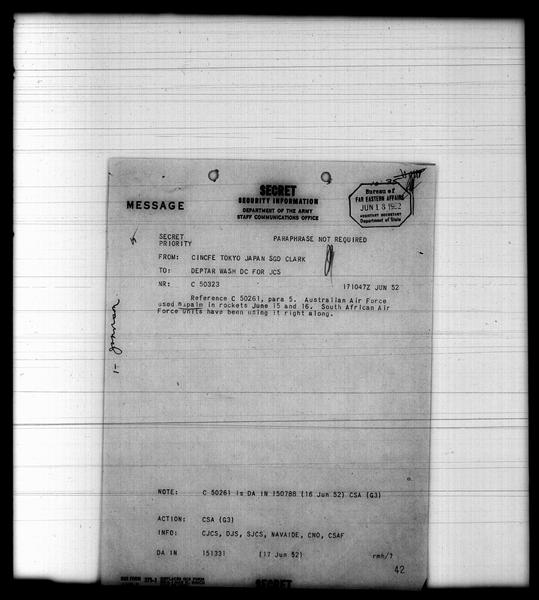 SECRET
SECURITY INFORMATION
DEPARTMENT OF THE ARMY
STAFF COMMUNICATIONS OFFICE
MESSAGE
Bureau of
FAR EASTERN AFFAIRS
JUN 18 1952
ASSISTANT SECRETARY
Department of State
SECRET
PRIORITY
PARAPHRASE NOT REQUIRED
FROM: CINCFE TOKYO JAPAN SGD CLARK
TO: DEPTAR WASH DC FOR JCS
NR: C 50323 171047Z JUN 52
Reference C 50261, para 5. Australian Air Force
used napalm in rockets June 15 and 16. South African Air
Force units have been using it right along.
NOTE: C 50261 is DA IN 150788 (16 Jun 52) CSA (G3)
ACTION: CSA (G3)
INFO: CJCS, DJS, SJCS, NAVAIDE, CNO, CSAF
DA IN 151331 (17 Jun 52) rmh/7
42
SECRET